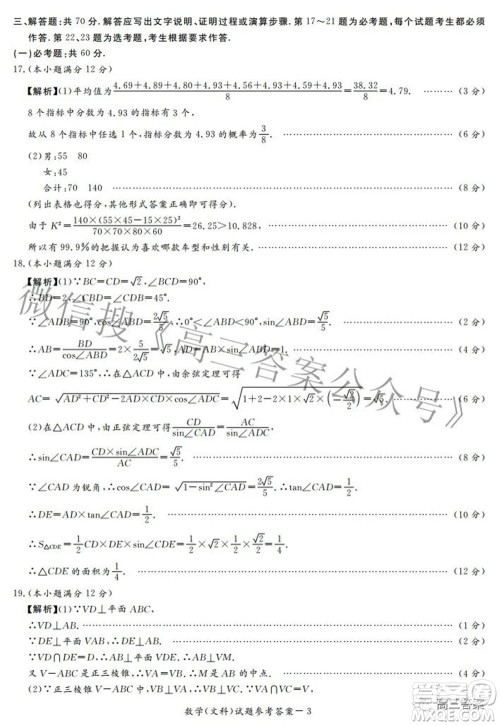 三、解答题:共 70 分.解答应写出文字说明、证明过程或演算步骤.第 17～21 题为必考题,每个试题考生都必须
作答.第 22、23 题为选考题,考生根据要求作答.
(一)必考题:共 60 分.
17.(本小题满分 12 分)
【解析】(1)平均值为(4.69+4.89+4.80+4.60+4.93+4.56+4.92+4.93)/8=38.32/8=4.79. ……… (3 分)
8 个指标中分数为 4.93 的个数有 3 个,
故从 8 个指标中任选 1 个,分数为 4.93 的概率为3/8. ……… (6 分)
(2)男:55 80
女:45
合计:70 140 ……… (8 分)
(列出表格也得分,其他形式答案正确同样得分)
由于 K²=140×(55×45-15×25)²/(70×70×80×60)=26.25>10.828, ……… (10 分)
所以有 99.9%的把握认为喜欢哪款车型和性别有关. ……… (12 分)
18.(本小题满分 12 分)
【解析】(1)∵BC=CD=√2,∠BCD=90°,
∴BD=2,∠CBD=∠CDB=45°. ……… (2 分)
∵∠ADB=90°,∴0°<∠ABD<90°,
∴AB=BD/cos∠ABD
∵∠ADC=135°,∴在△ACD中,由余弦定理可得
AC=√(AD²+CD²-2AD×CD×cos∠ADC) ……… (6 分)
(2)在△ACD 中,由正弦定理可得CD/sin∠CAD
∴sin∠CAD=CD×sin∠ADC/AC=√5/5. ……… (8 分)
∵∠CAD 为锐角,∴cos∠CAD=√(1-sin²∠CAD)=2√5/5,
∴DE=AD×tan∠CAD=1/2. ……… (10 分)
∴S△CDE=1/2×√2×1/2×√2/2=1/4,
∴△CDE 的面积为1/4. ……… (12 分)
19.(本小题满分 12 分)
【解析】(1)∵VD⊥平面 ABC,
∴VD⊥AB. ……… (1 分)
∵DE⊥平面 VAB,∴DE⊥AB. ……… (2 分)
∵VD∩DE=D,∴AB⊥平面 VMD,∴AB⊥VM. ……… (4 分)
又 V－ABC 是正三棱锥,∴M 是 AB 的中点. ……… (6 分)
(2)∵V－ABC 为正三棱锥,
数学(文科)试题参考答案－3
微信搜《高三答案公众号》
高三答案